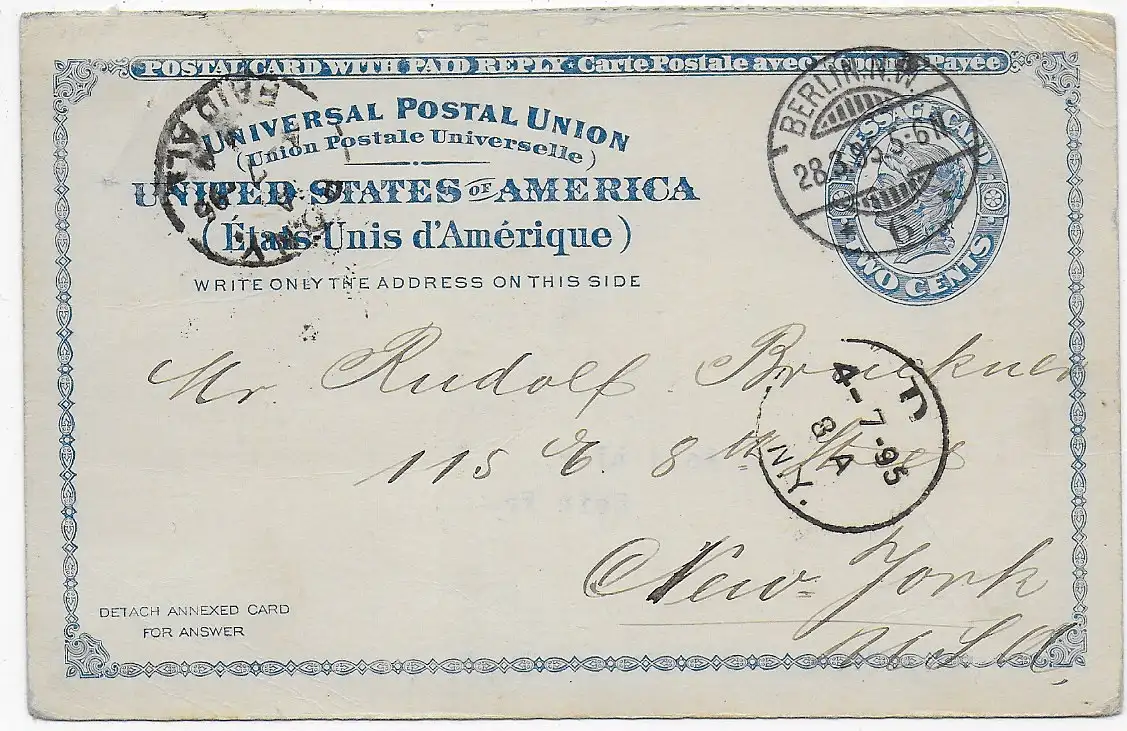 POSTAL CARD WITH PAID REPLY · Carte Postale avec Réponse Payée
UNIVERSAL POSTAL UNION
(Union Postale Universelle)
UNITED STATES OF AMERICA
(États-Unis d'Amérique)
WRITE ONLY THE ADDRESS ON THIS SIDE
MESSAGE CARD
TWO CENTS
BERLIN.N.W.
28.3.95.5-6N
PAID ALL
N.Y.
D
4-7-95
8 A
N.Y.
Mr. Rudolf Bruckner
115 E. 8th Street
New-York
U.S.A.
DETACH ANNEXED CARD
FOR ANSWER